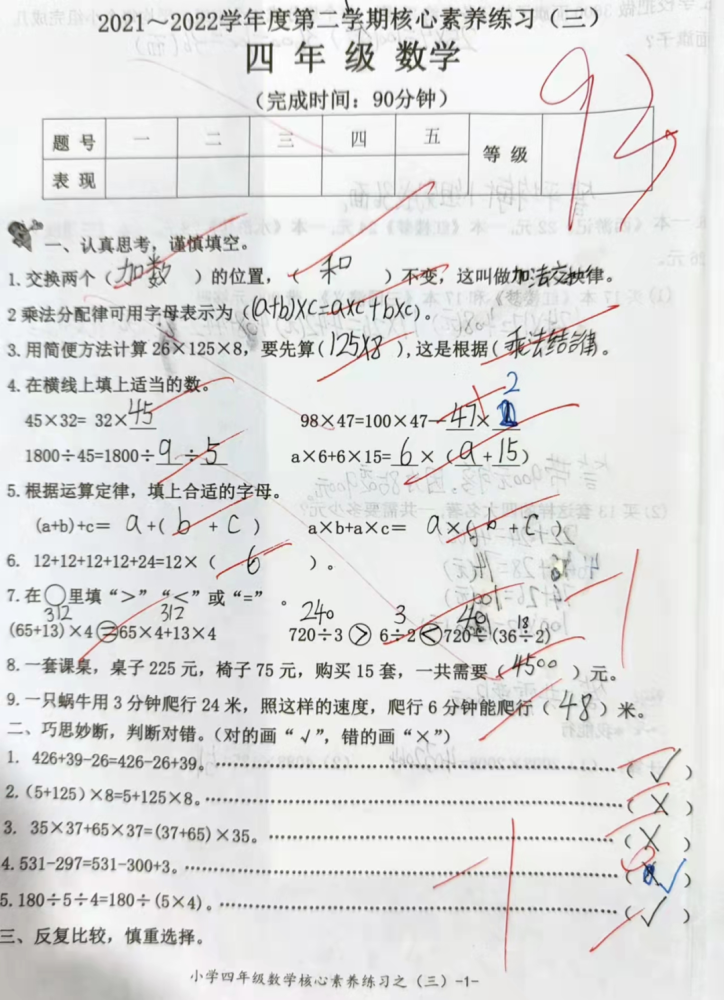 2021～2022学年度第二学期核心素养练习（三）
四 年 级 数学
（完成时间：90分钟）
题 号 一 二 三 四 五 等 级 93
表 现
一、认真思考，谨慎填空。
1.交换两个（加数）的位置，（和）不变，这叫做加法交换律。
2 乘法分配律可用字母表示为（(a+b)×c=a×c+b×c）。
3.用简便方法计算 26×125×8，要先算（125×8），这是根据（乘法结合律）。
4.在横线上填上适当的数。
2
45×32= 32×45 98×47=100×47－47×
1800÷45=1800÷9÷5 a×6+6×15=6×（a+15）
5.根据运算定律，填上合适的字母。
(a+b)+c= a+(b+c) a×b+a×c= a×(b+c)
6. 12+12+12+12+24=12×（6）。
7.在○里填“>”“<”或“=”。 -1
312 312 240 3 40 18
(65+13)×4=65×4+13×4 720÷3>6÷2<720÷(36÷2)
8.一套课桌，桌子 225 元，椅子 75 元，购买 15 套，一共需要（4500）元。
9.一只蜗牛用 3 分钟爬行 24 米，照这样的速度，爬行 6 分钟能爬行（48）米。
二、巧思妙断，判断对错。（对的画“√”，错的画“×”）
1. 426+39-26=426-26+39。（√）
2.（5+125）×8=5+125×8。（×）
3. 35×37+65×37=(37+65)×35。（×）
4.531-297=531-300+3。（√） -1
5.180÷5÷4=180÷(5×4)。（√）
三、反复比较，慎重选择。
小学四年级数学核心素养练习之（三）-1-